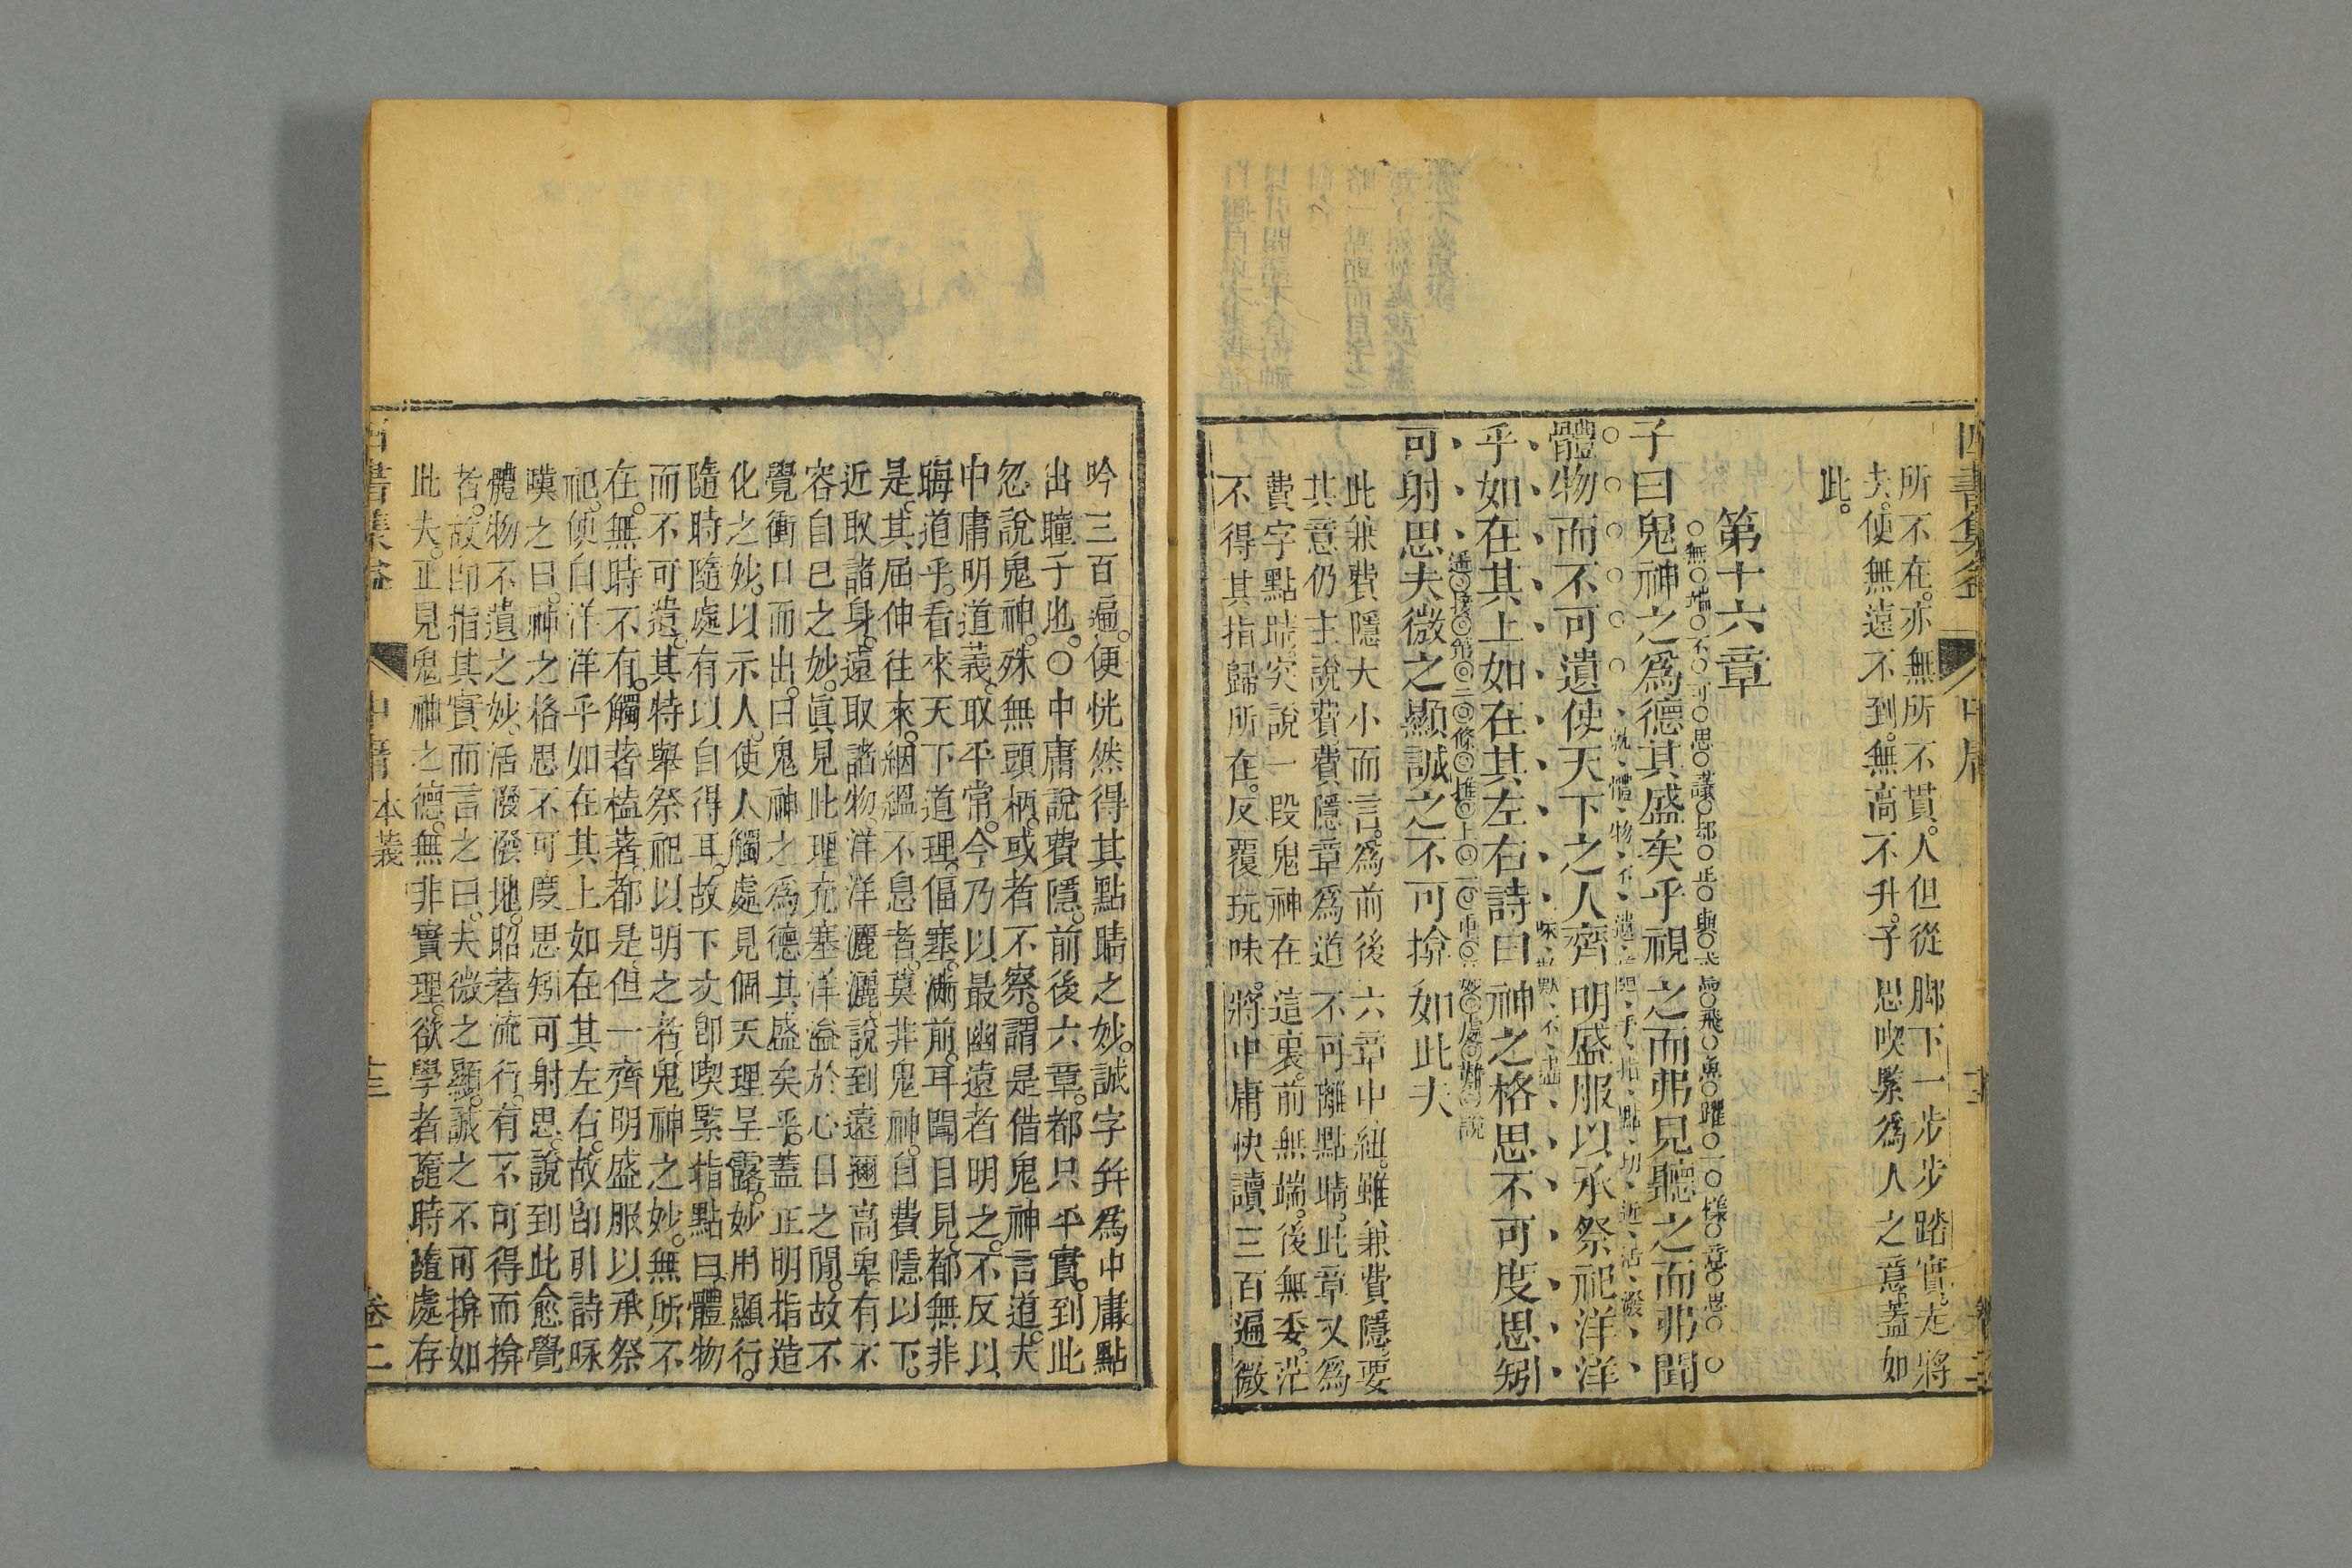 所不在。亦無所不貫。人但從脚下一步步踏實走將
去。便無遠不到。無高不升。子思喫緊爲人之意蓋如
此。
第十六章
無端不可思議却正與鳶飛魚躍一樣意思
子曰鬼神之爲德其盛矣乎視之而弗見聽之而弗聞
體物而不可遺使天下之人齊明盛服以承祭祀洋洋
乎如在其上如在其左右詩曰神之格思不可度思矧
可射思夫微之顯誠之不可揜如此夫
此兼費隱大小而言。爲前後六章中紐。雖兼費隱。要
其意仍主說費。費隱章爲道不可離點睛。此章又爲
費字點睛。突說一段鬼神在這裏。前無端。後無委。茫
不得其指歸所在。反覆玩味。將中庸快讀三百遍微
吟三百遍。便恍然得其點睛之妙。誠字并爲中庸點
出瞳子也。○中庸說費隱。前後六章。都只平實。到此
忽說鬼神。殊無頭柄。或者不察。謂是借鬼神言道。夫
中庸明道義。取平常。今乃以最幽遠者明之。不反以
晦道乎。看來天下道理。偪塞滿前。耳聞目見。都無非
是。其屈伸往來。絪縕不息者。莫非鬼神。自費隱以下。
近取諸身。遠取諸物。洋洋灑灑。說到遠邇高卑。有不
容自已之妙。眞見此理充塞洋溢於心目之間。故不
覺衝口而出。曰鬼神之爲德其盛矣乎。蓋正明指造
化之妙。以示人。使人觸處見個天理呈露。妙用顯行。
隨時隨處有以自得耳。故下文卽喫緊指點曰。體物
而不可遺。其特舉祭祀以明之者。鬼神之妙。無所不
在。無時不有。觸著榼著都是。但一齊明盛服以承祭
祀。便自洋洋乎如在其上如在其左右。故卽引詩咏
嘆之曰。神之格思不可度思矧可射思。說到此愈覺
體物不遺之妙。活潑潑地。昭著流行。有不可得而揜
者。故卽指其實而言之曰。夫微之顯。誠之不可揜如
此夫。正見鬼神之德。無非實理。欲學者隨時隨處存
四書集益 中庸 本義 十三 卷二